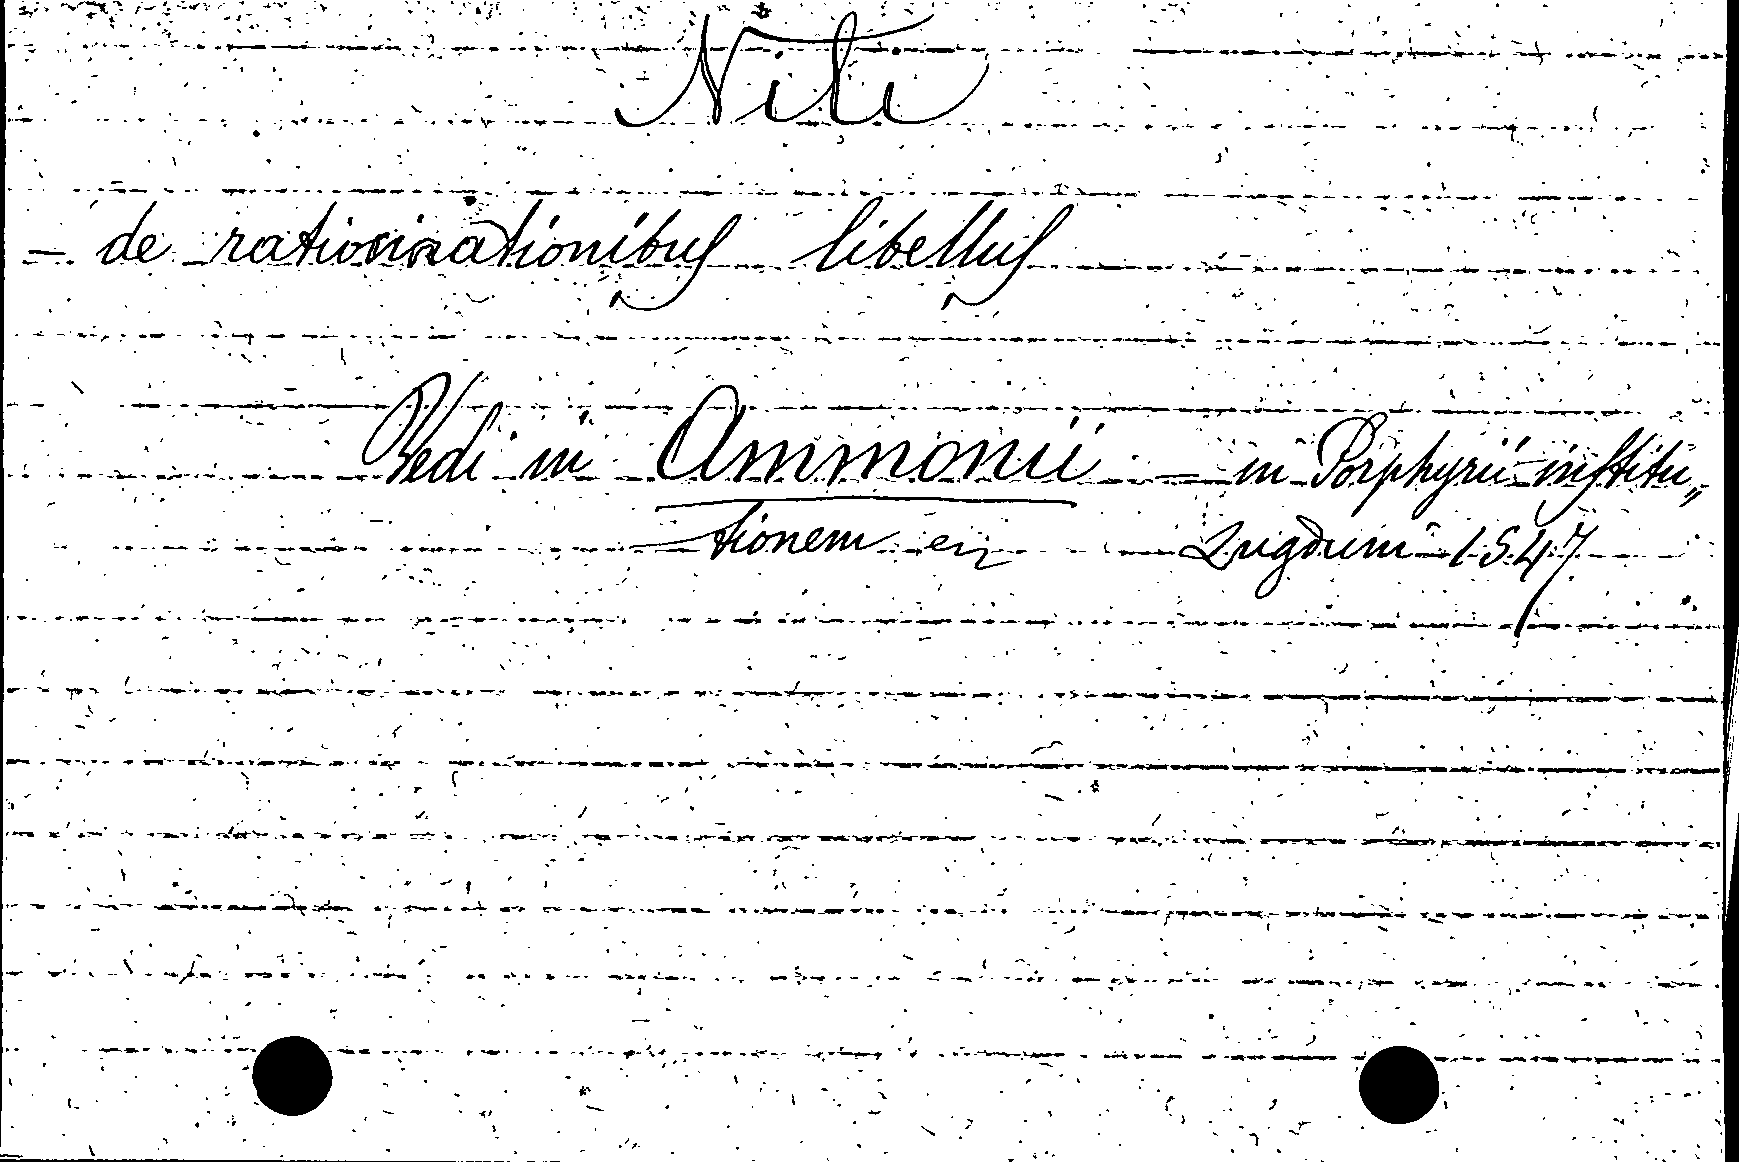 Niti
— de ratiocinationibus libellus
Vedi in Ammonii — in Porphyrii institu„
tionem Lugduni 1547